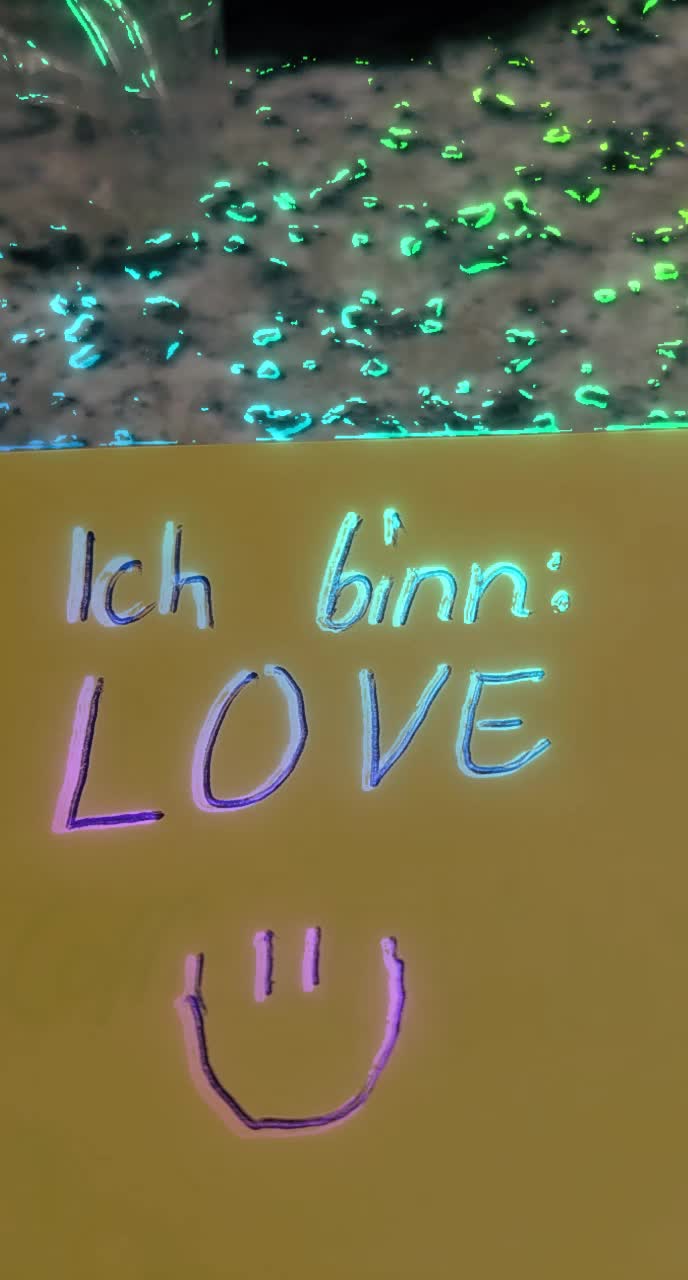 Ich binn:
LOVE